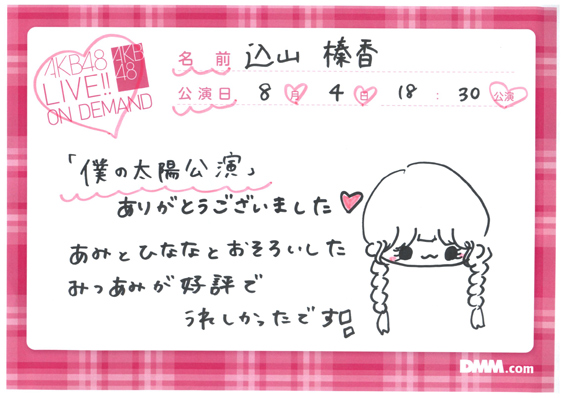 AKB48
LIVE!!
ON DEMAND
AKB
48
名前 込山 榛香
公演日 8月 4日 18:30公演
「僕の太陽公演」
ありがとうございました
あみとひななとおそろいした
みつあみが好評で
うれしかったです!!
DMM.com